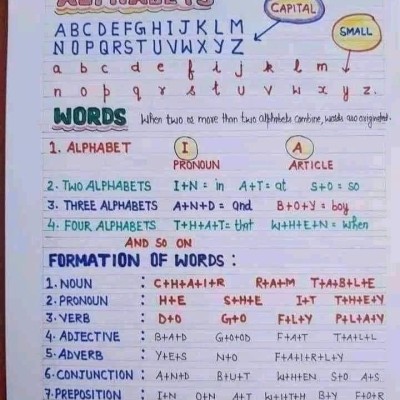 ALPHABETS
CAPITAL
A B C D E F G H I J K L M
N O P Q R S T U V W X Y Z
SMALL
a b c d e f i j k l m
n o p q r s t u v w x y z.
WORDS When two or more than two alphabets combine, words are originated.
1. ALPHABET I A
PRONOUN ARTICLE
2. TWO ALPHABETS I+N = in A+T = at S+O = so
3. THREE ALPHABETS A+N+D = and B+O+Y = boy
4. FOUR ALPHABETS T+H+A+T = that W+H+E+N = when
AND SO ON
FORMATION OF WORDS :
1. NOUN : C+H+A+I+R R+A+M T+A+B+L+E
2. PRONOUN : H+E S+H+E I+T T+H+E+Y
3. VERB : D+O G+O F+L+Y P+L+A+Y
4. ADJECTIVE : B+A+D G+O+O+D F+A+T T+A+L+L
5. ADVERB : Y+E+S N+O F+A+I+R+L+Y
6. CONJUNCTION : A+N+D B+U+T W+H+EN SO A+S
7. PREPOSITION : I+N O+N A+T W+I+T+H B+Y F+O+R